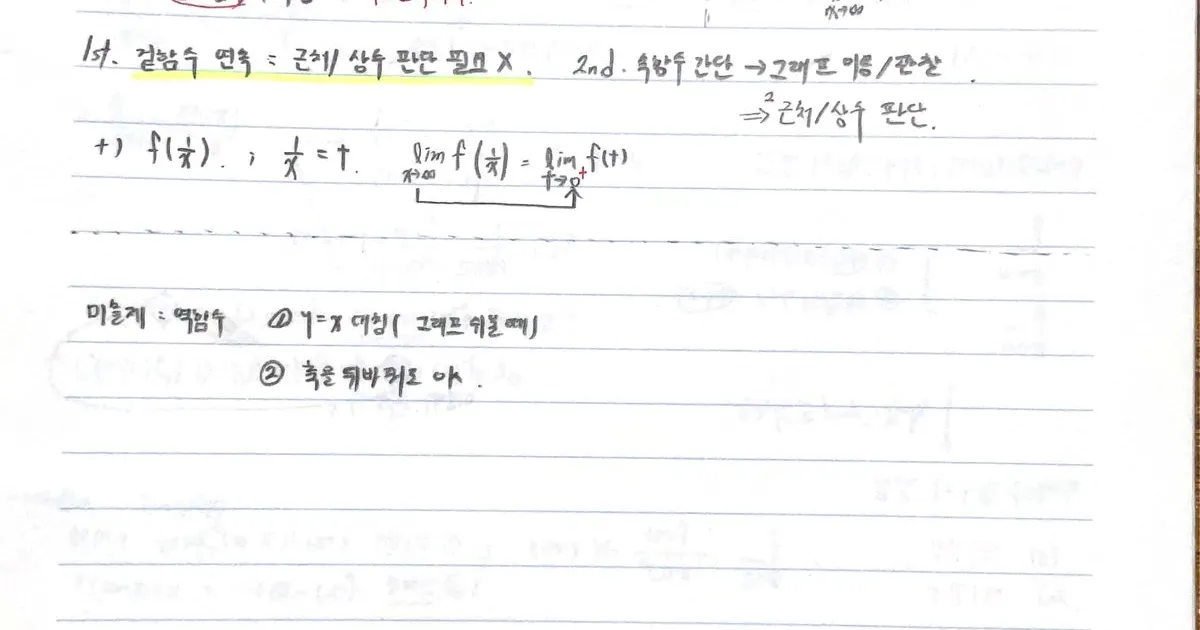 x→∞
1st. 겉함수 연속 : 근처/상수 판단 필요 X. 2nd. 속함수 간단 → 그래프 이용/관찰.
⇒² 근처/상수 판단.
+) f(1/x). ; 1/x = t. lim x→∞ f(1/x) = lim t→0+ f(t)
미출제 : 역함수 ① y=x 대칭( 그래프 쉬울 때)
② 축을 뒤바꿔도 OK.